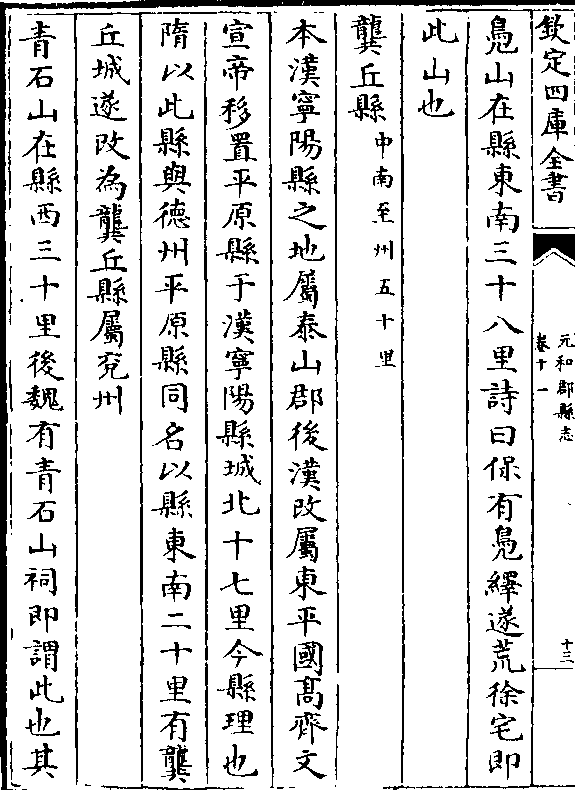 欽定四庫全書
元和郡縣志
卷十一
十三
鳬山在縣東南三十八里詩曰保有鳬繹遂荒徐宅即
此山也
龔丘縣中南至州五十里
本漢寧陽縣之地屬泰山郡後漢改屬東平國髙齊文
宣帝移置平原縣于漢寧陽縣城北十七里今縣理也
隋以此縣與德州平原縣同名以縣東南二十里有龔
丘城遂改為龔丘縣屬兗州
青石山在縣西三十里後魏有青石山祠即謂此也其